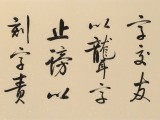 字交友
以聾字
止謗以
刻字責